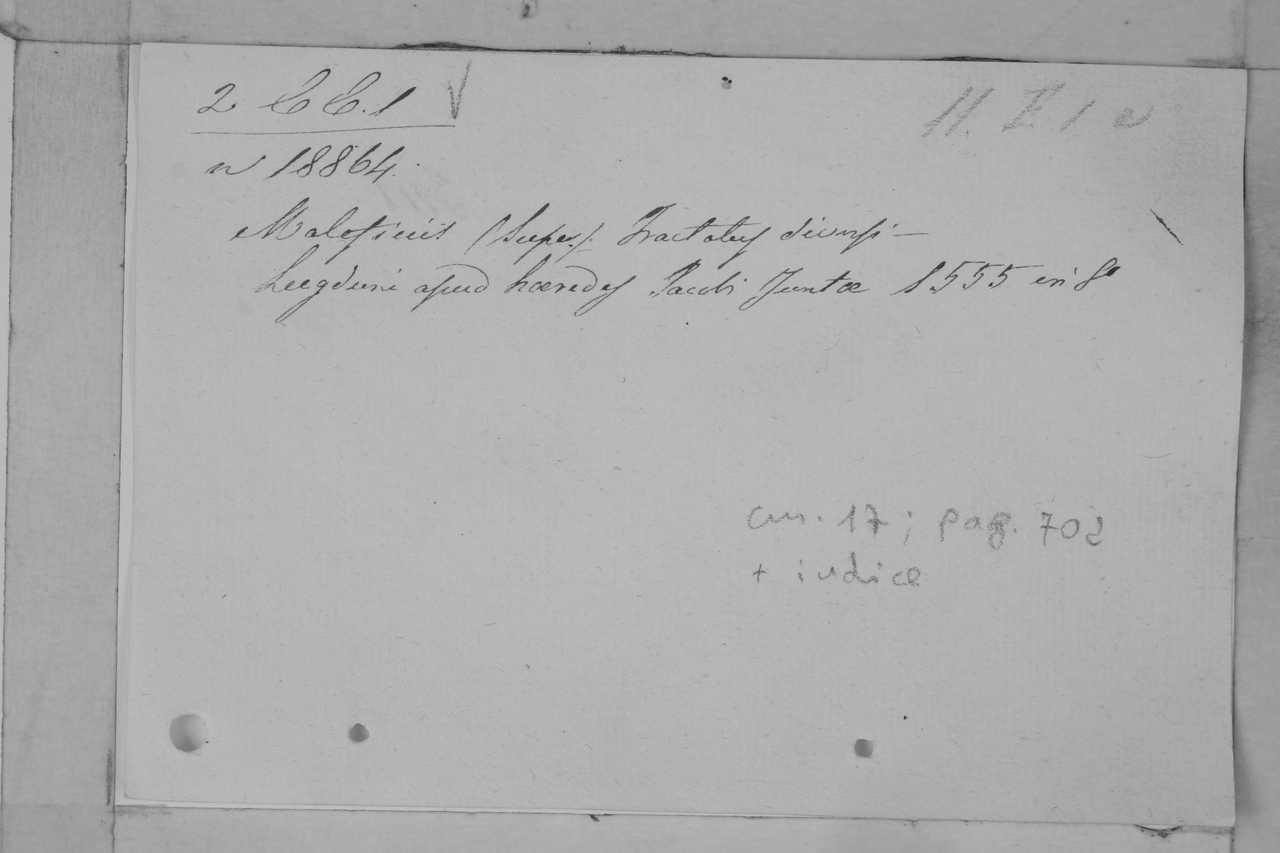 2 C C. 1 V
H. E. 1 a
n 18864.
Maleficiis (Super). Tractatus diversi —
Lugduni apud hæredes Jacobi Juntæ 1555 in 8°
cm. 17; pag. 702
+ indice